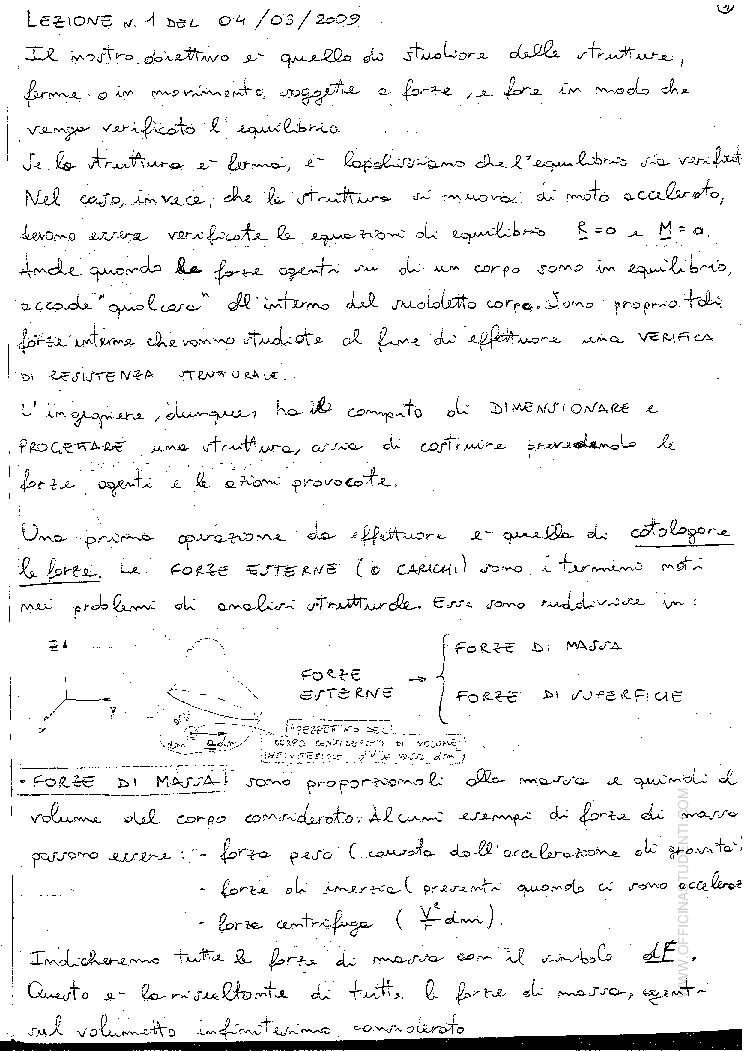 LEZIONE N. 1 DEL 04/03/2009
Il nostro obiettivo e' quello di studiare delle strutture,
ferme o in movimento, soggette a forze, e fare in modo che
venga verificato l'equilibrio
Se la struttura e' ferma, e' che l'equilibrio sia verificat
Nel caso, invece, che la struttura si muova di moto accelerato,
devono essere verificate le equazioni di equilibrio R=0 e M=0.
Anche quando le forze agenti su di un corpo sono in equilibrio,
accade "qualcosa" all'interno del suddetto corpo. Sono proprio tali
forze interne che vanno studiate al fine di effettuare una VERIFICA
DI RESISTENZA STRUTTURALE.
L'ingegnere, dunque, ha il compito di DIMENSIONARE e
PROGETTARE una struttura, ossia di costruire prevedendo le
forze agenti e le azioni provocate.
Una prima operazione da effettuare e' quella di catalogare
le forze. Le FORZE ESTERNE (o CARICHI) sono i termini noti
nei problemi di analisi strutturale. Esse sono suddivise in:
FORZE ESTERNE → { FORZE DI MASSA
FORZE DI SUPERFICIE
z
y
dV
dm
a dm
PEZZETTINO DEL
CORPO CONSIDERATO DI VOLUME
INFINITESIMO dV E MASSA dm
- FORZE DI MASSA: sono proporzionali alla massa e quindi al
volume del corpo considerato. Alcuni esempi di forze di massa
possono essere: - forza peso (causata dall'accelerazione di gravita')
- forze di inerzia (presenti quando ci sono acceleraz
- forza centrifuga (V²/r dm).
Indicheremo tutte le forze di massa con il simbolo dF.
Questo e' la risultante di tutte le forze di massa, agenti
sul volumetto infinitesimo considerato
WWW.OFFICINASTUDENTI.COM